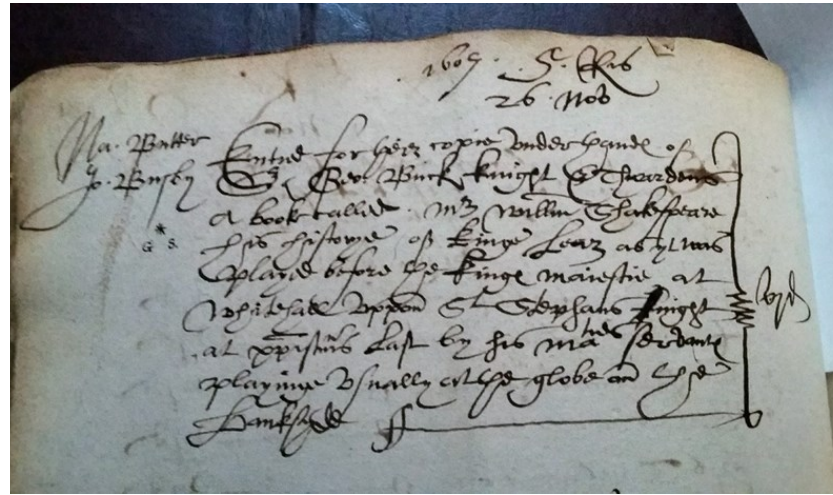 1607. 5. Ris
26 Nov
Na. Butter
Jo. Busby
Entred for their copie under thande of
Sr Geo. Buck knight & Thwardens
A booke called. Mr William Shakespeare
his historye of Kinge Lear as yt was
played before the kinge maiestie at
Whitehall uppon St Stephans night
at xpistmas Last by his maties servante
playinge usually at the globe on the
Banksyde
vjd